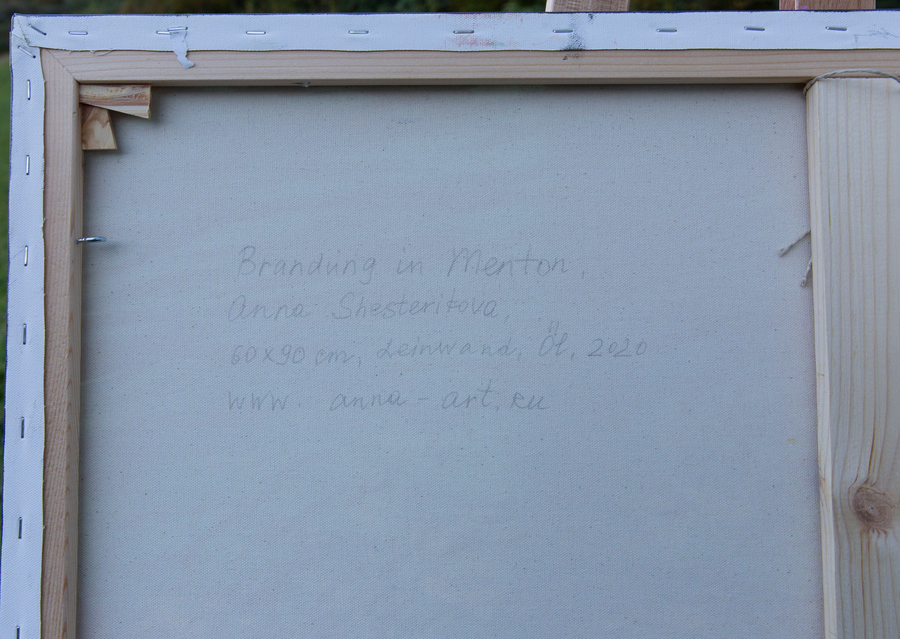 Brandung in Menton,
Anna Shesterikova,
60x90 cm, Leinwand, Öl, 2020
www. anna-art.ru